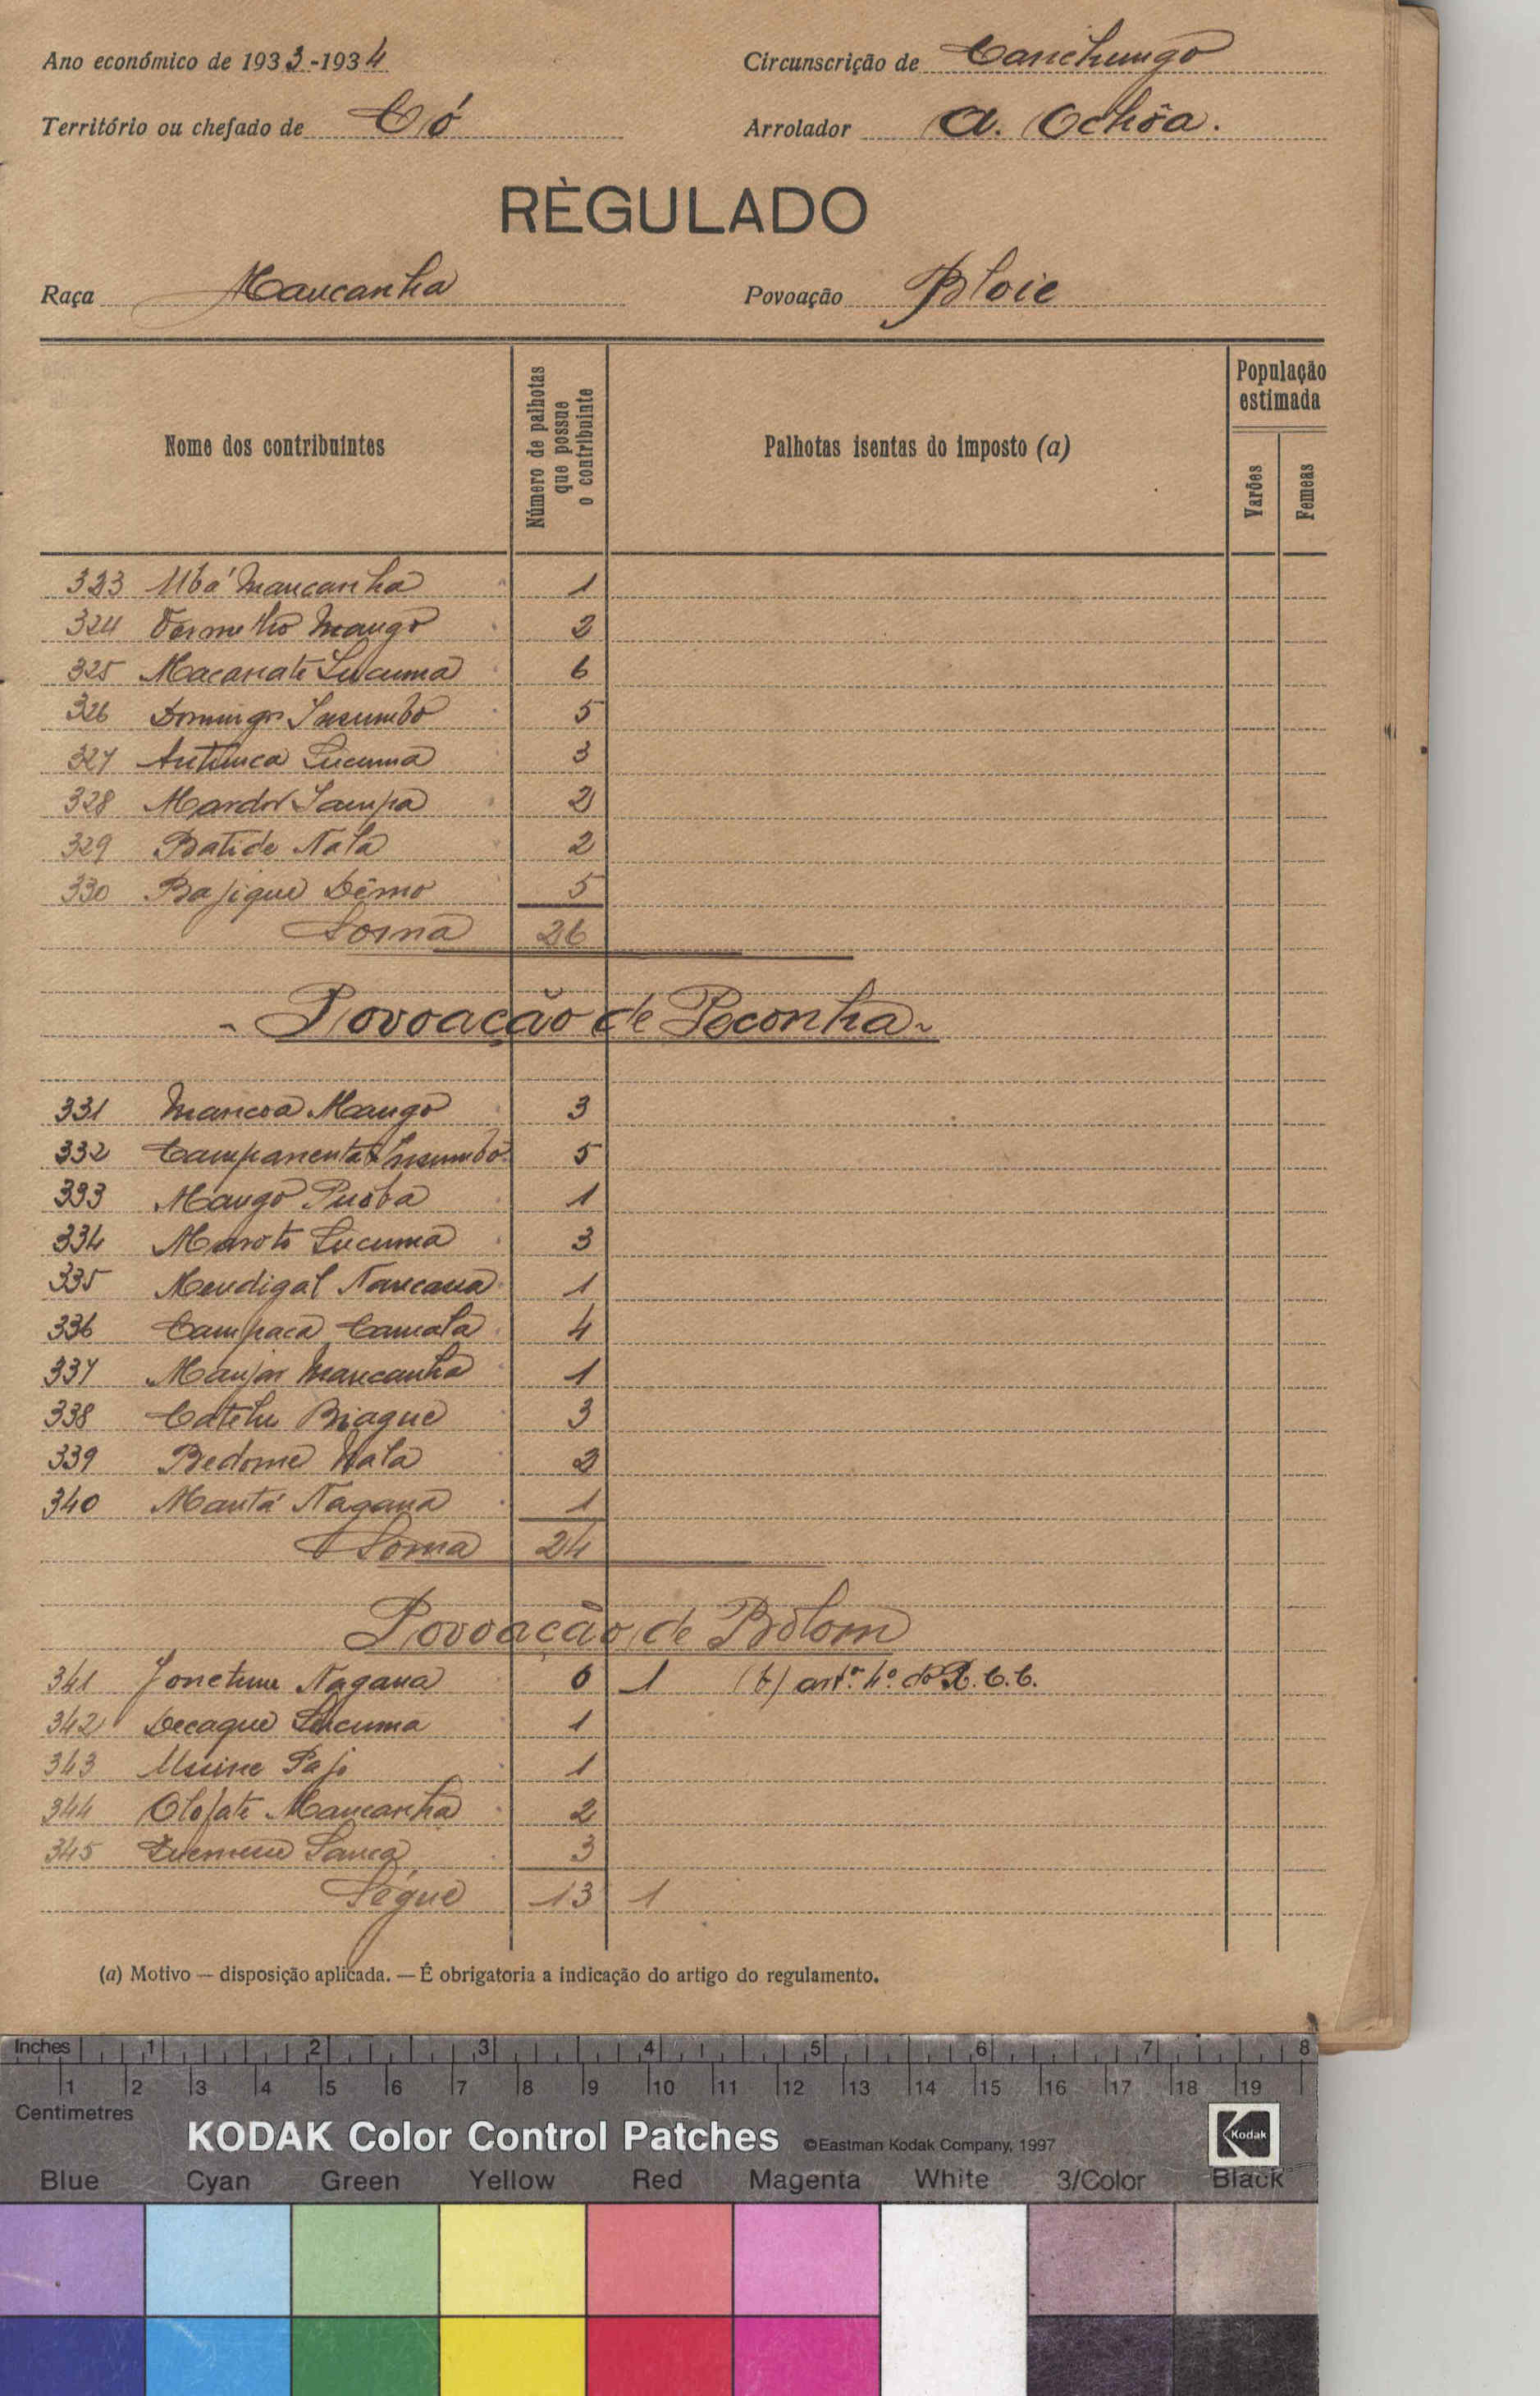 Ano económico de 1933-1934 Circunscrição de Canchungo
Território ou chefado de Có Arrolador A. Ochôa.
RÈGULADO
Raça Mancanha Povoação Bloie
Nome dos contribuintes
Número de palhotas que possue o contribuinte
Palhotas isentas do imposto (a)
População estimada
Varões
Femeas
323 Ubá Mancanha 1
324 Vermelho Mango 2
325 Macanate Lucuma 6
326 Domingos Insumbo 5
327 Lucuma 3
328 Mandor Sampa 2
329 Batide Nala 2
330 Bajique Dêmo 5
Soma 26
- Povoação de Peconha -
331 Mancoa Mango 3
332 Campanenta Insumbo 5
333 Mango 1
334 Maroto Lucuma 3
335 Mendigal Nancana 1
336 Campaca Camala 4
337 Manjor Mancanha 1
338 Catehu Biague 3
339 Bedome Nala 2
340 Mantá Nagana 1
Soma 24
Povoação de Bôlom
341 Nagana 6 1 (b) artº. 4º. do R. C. C.
342 Decaque Lucuma 1
343 1
344 Olofate Mancanha 2
345 Sanca 3
Ségue 13 1
(a) Motivo — disposição aplicada. — É obrigatoria a indicação do artigo do regulamento.
Inches 1 2 3 4 5 6 7 8
1 2 3 4 5 6 7 8 9 10 11 12 13 14 15 16 17 18 19
Centimetres
KODAK Color Control Patches ©Eastman Kodak Company, 1997 Kodak
Blue Cyan Green Yellow Red Magenta White 3/Color Black